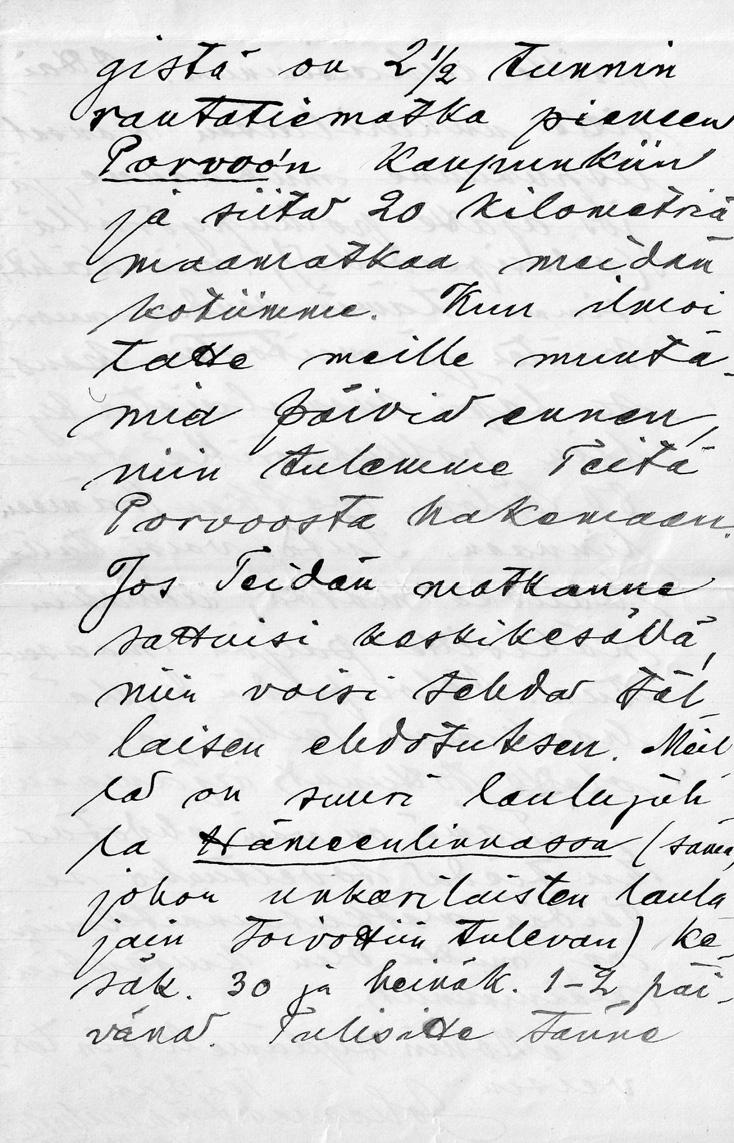 gistä on 2½ tunnin
rautatiematka pieneen
Porvoo'n kaupunkiin
ja siitä 20 kilometriä
maamatkaa meidän
kotiimme. Kun ilmoi
tatte meille muuta-
mia päiviä ennen,
niin tulemme Teitä
Porvoosta hakemaan.
Jos Teidän matkanne
sattuisi keskikesällä,
niin voisi tehdä täl
laisen ehdotuksen. Meil
lä on suuri laulujuh
la Hämeenlinnassa (sama,
johon unkarilaisten laula
jain toivottiin tulevan) ke-
säk. 30 ja heinäk. 1-2 päi-
vänä. Tulisitte tänne